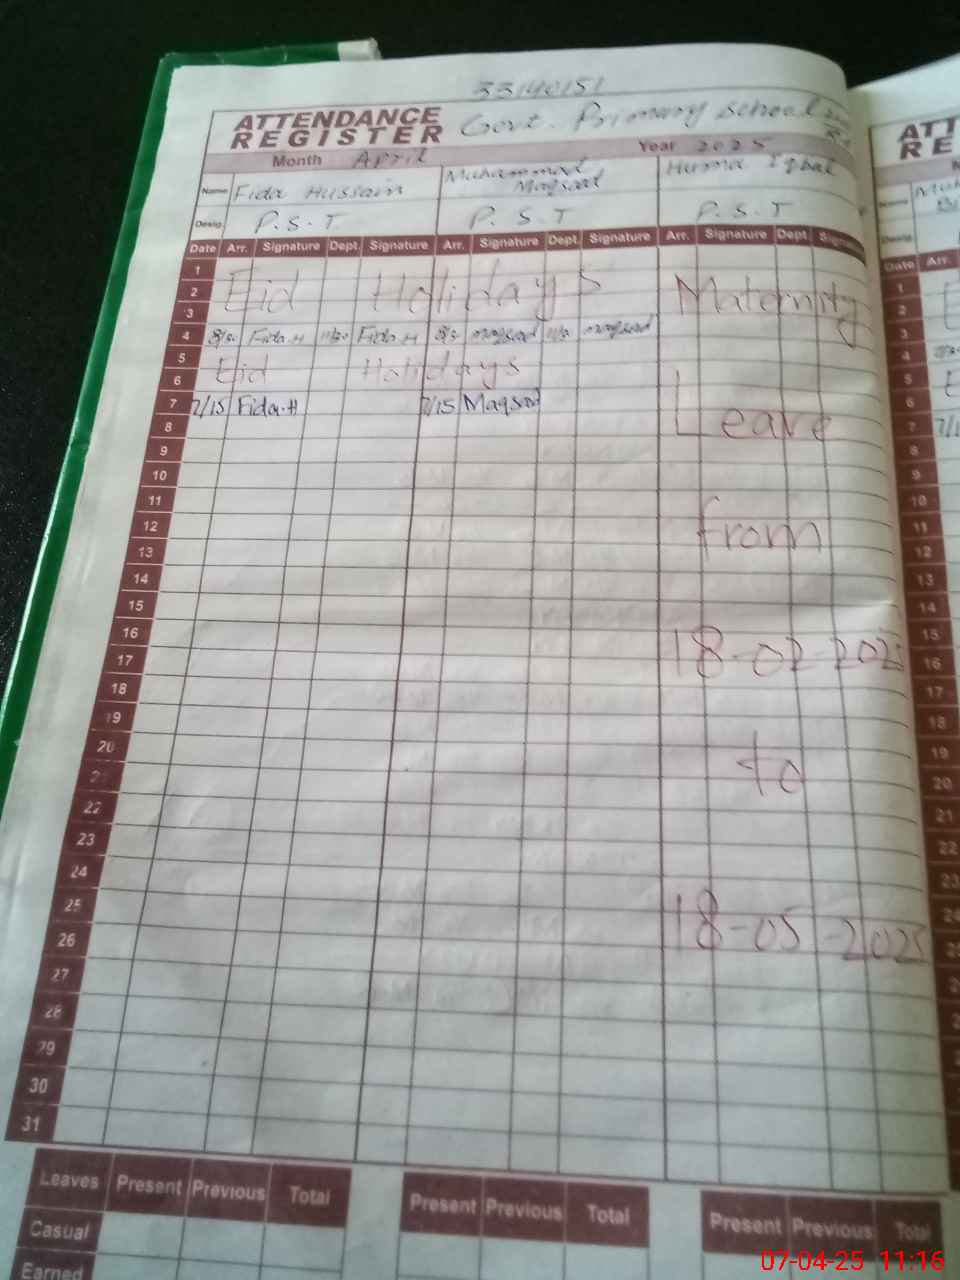 33140151
ATTENDANCE REGISTER Govt. Primary School
Month April Year 2025
Name Fida Hussain Muhammad Maqsad Huma Iqbal
Desig. P.S.T P.S.T P.S.T
Date Arr. Signature Dept. Signature Arr. Signature Dept. Signature Arr. Signature Dept. Signature
1
2 Eid Holidays Maternity
3
4 Fida.H Fida.H maqsad maqsad
5
6 Eid Holidays
7 7/15 Fida.H 7/15 Maqsad
8 Leave
9
10
11
12 from
13
14
15
16
17 18-02-2025
18
19
20
21 to
22
23
24
25
26 18-05-2025
27
28
29
30
31
Leaves Present Previous Total Present Previous Total Present Previous Total
Casual
Earned
ATT
RE
Name
Desig.
Date Arr.
1
2
3
4
5
6
7
8
9
10
11
12
13
14
15
16
17
18
19
20
21
22
23
07-04-25 11:16